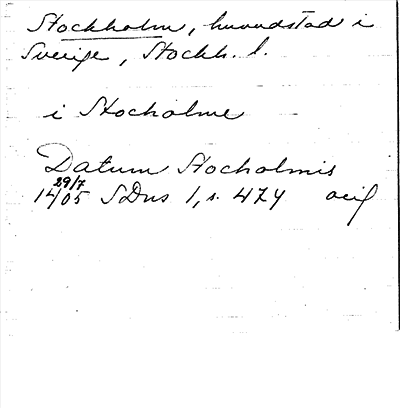 Stockholm, huvudstad i
Sverige, Stockh. l.
i Stocholme
Datum Stocholmis
29/7
1405 SDns 1, s. 474 avskr